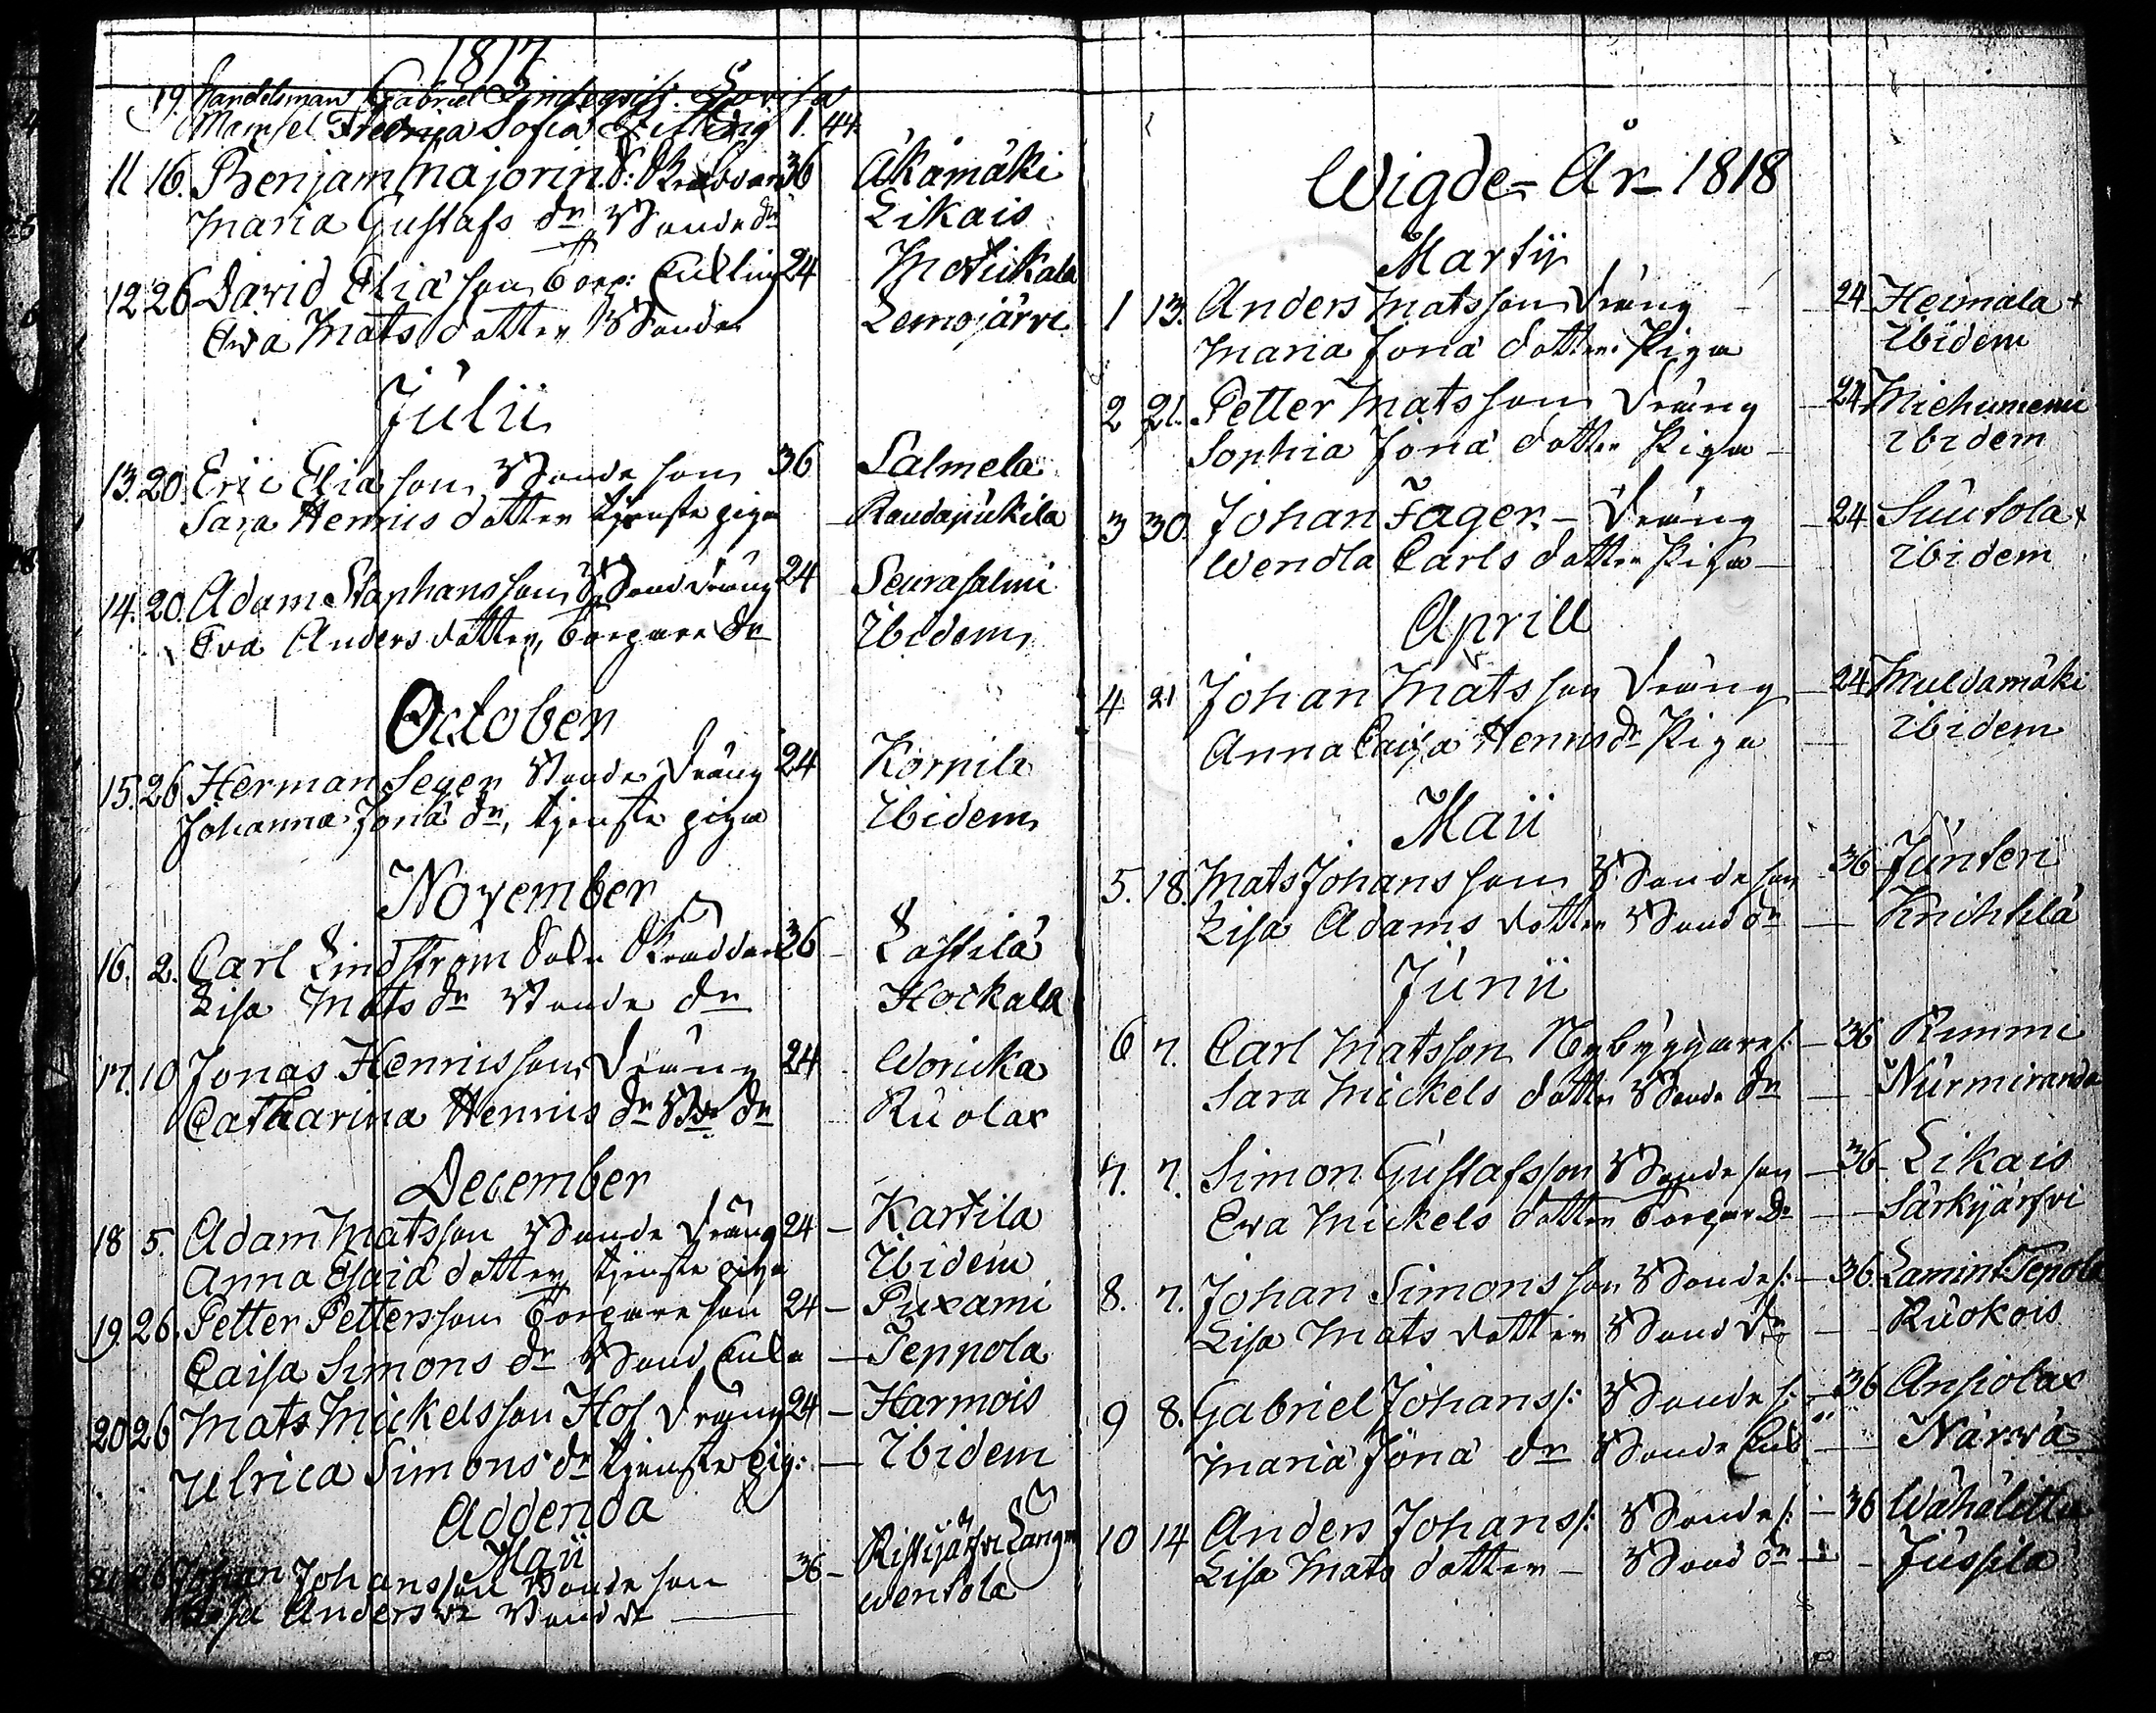 1817
19. Handelsman Gabriel Lovisa
Mamsel Fredrica Sofia 1. 44
11 16. Benjam Majorin S: Skräddare 36 Åkämäki
Maria Gustafs dr Bonde dr Likais
12 26 David Eliä son Torp: Enkling 24 Motükala
Ewa Mats dotter Bonde Lemojärvi
Julii
13. 20. Eric Eliä son Bonde son 36 Salmela
Sara Henrics dotter tjenste piga Raudapükila
14. 20. Adam Staphans son Bond dräng 24 Seurasalmi
Eva Anders dotter, Torpare dr Ibidem
October
15. 26 Herman Seger Bonde dräng 24 Korpila
Johanna Jonä dr, tjenste piga Ibidem
November
16. 2. Carl Lindström Sokn Skräddare 36 – Lastilä
Lisa Mats dr Bonde dr Hockala
17. 10 Jonas Henrics son dräng 24 Woricka
Catharina Henrics dr Bde dr Ruolax
December
18 5. Adam Matsson Bonde dräng 24 – Kartila
Anna Esaiä dotter tjenste piga Ibidem
19. 26. Petter Pettersson Torpare son 24 – Puxami
Caisa Simons dr Bond Enka – Teppola
20 26 Mats Mickelsson Hof dräng 24 – Harmois
Ulrica Simons dr tjenste pig: – Ibidem
Addenda
Maji
21 26 Johan Johansson Bonde son 36 – Ristijärfvi Lang
Anders dr Bond dr wentola
Wigde – År – 1818
Martij
1 13. Anders Matsson dräng – 24 Heimala +
Maria Jonä dotter Piga Ibidem
2 21. Petter Matsson dräng – 24 Michumeni
Sophia Jonä dotter Piga – ibidem
3 30. Johan Fager – dräng – 24 Suutola +
Wendla Carls dotter Piga – ibidem
Aprill
4 21 Johan Matsson dräng – 24 Muldamäki
Anna Caisa Henrics dr Piga – ibidem
Maii
5. 18. Mats Johansson Bonde son – 36 Junteri
Lisa Adams dotter Bond dr – Knihtilä
Junii
6 7. Carl Matsson Nybyggare s: – 36 Rimmi
Sara Mickels dotter Bonde dr – Nurmiranda
7. 7. Simon Gustafsson Bonde son – 36 Likais
Ewa Mickels dotter Torpar dr – Särkijärfvi
8. 7. Johan Simonsson Bonde s: – 36. Lamint Tepola
Lisa Mats dotter Bond dr – Ruokois
9 8. Gabriel Johans s: Bonde s: – 36 Ansiolax
Maria Jonä dr Bonde Enk – Närvä
10 14 Anders Johans s: Bonde s: – 36 Wähälittu
Lisa Mats dotter – Bond dr – Jussila